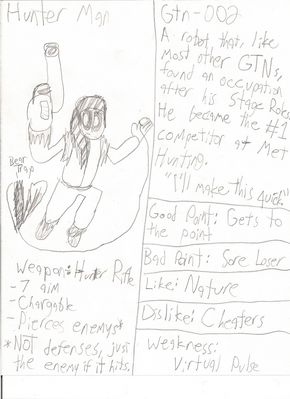 Hunter Man
Bear
Trap
Weapon: Hunter Rifle
- 7 aim
- Chargable
- Pierces enemys*
*Not defenses, just
the enemy if it hits.
Gtn-002
A robot, that, like
most other GTNs,
found an occupation
after his Stage Roles.
He became the #1
competitor at Met
Hunting.
"I'll make this quick."
Good Point: Gets to
the point
Bad Point: Sore Loser
Like: Nature
Dislike: Cheaters
Weakness:
Virtual Pulse